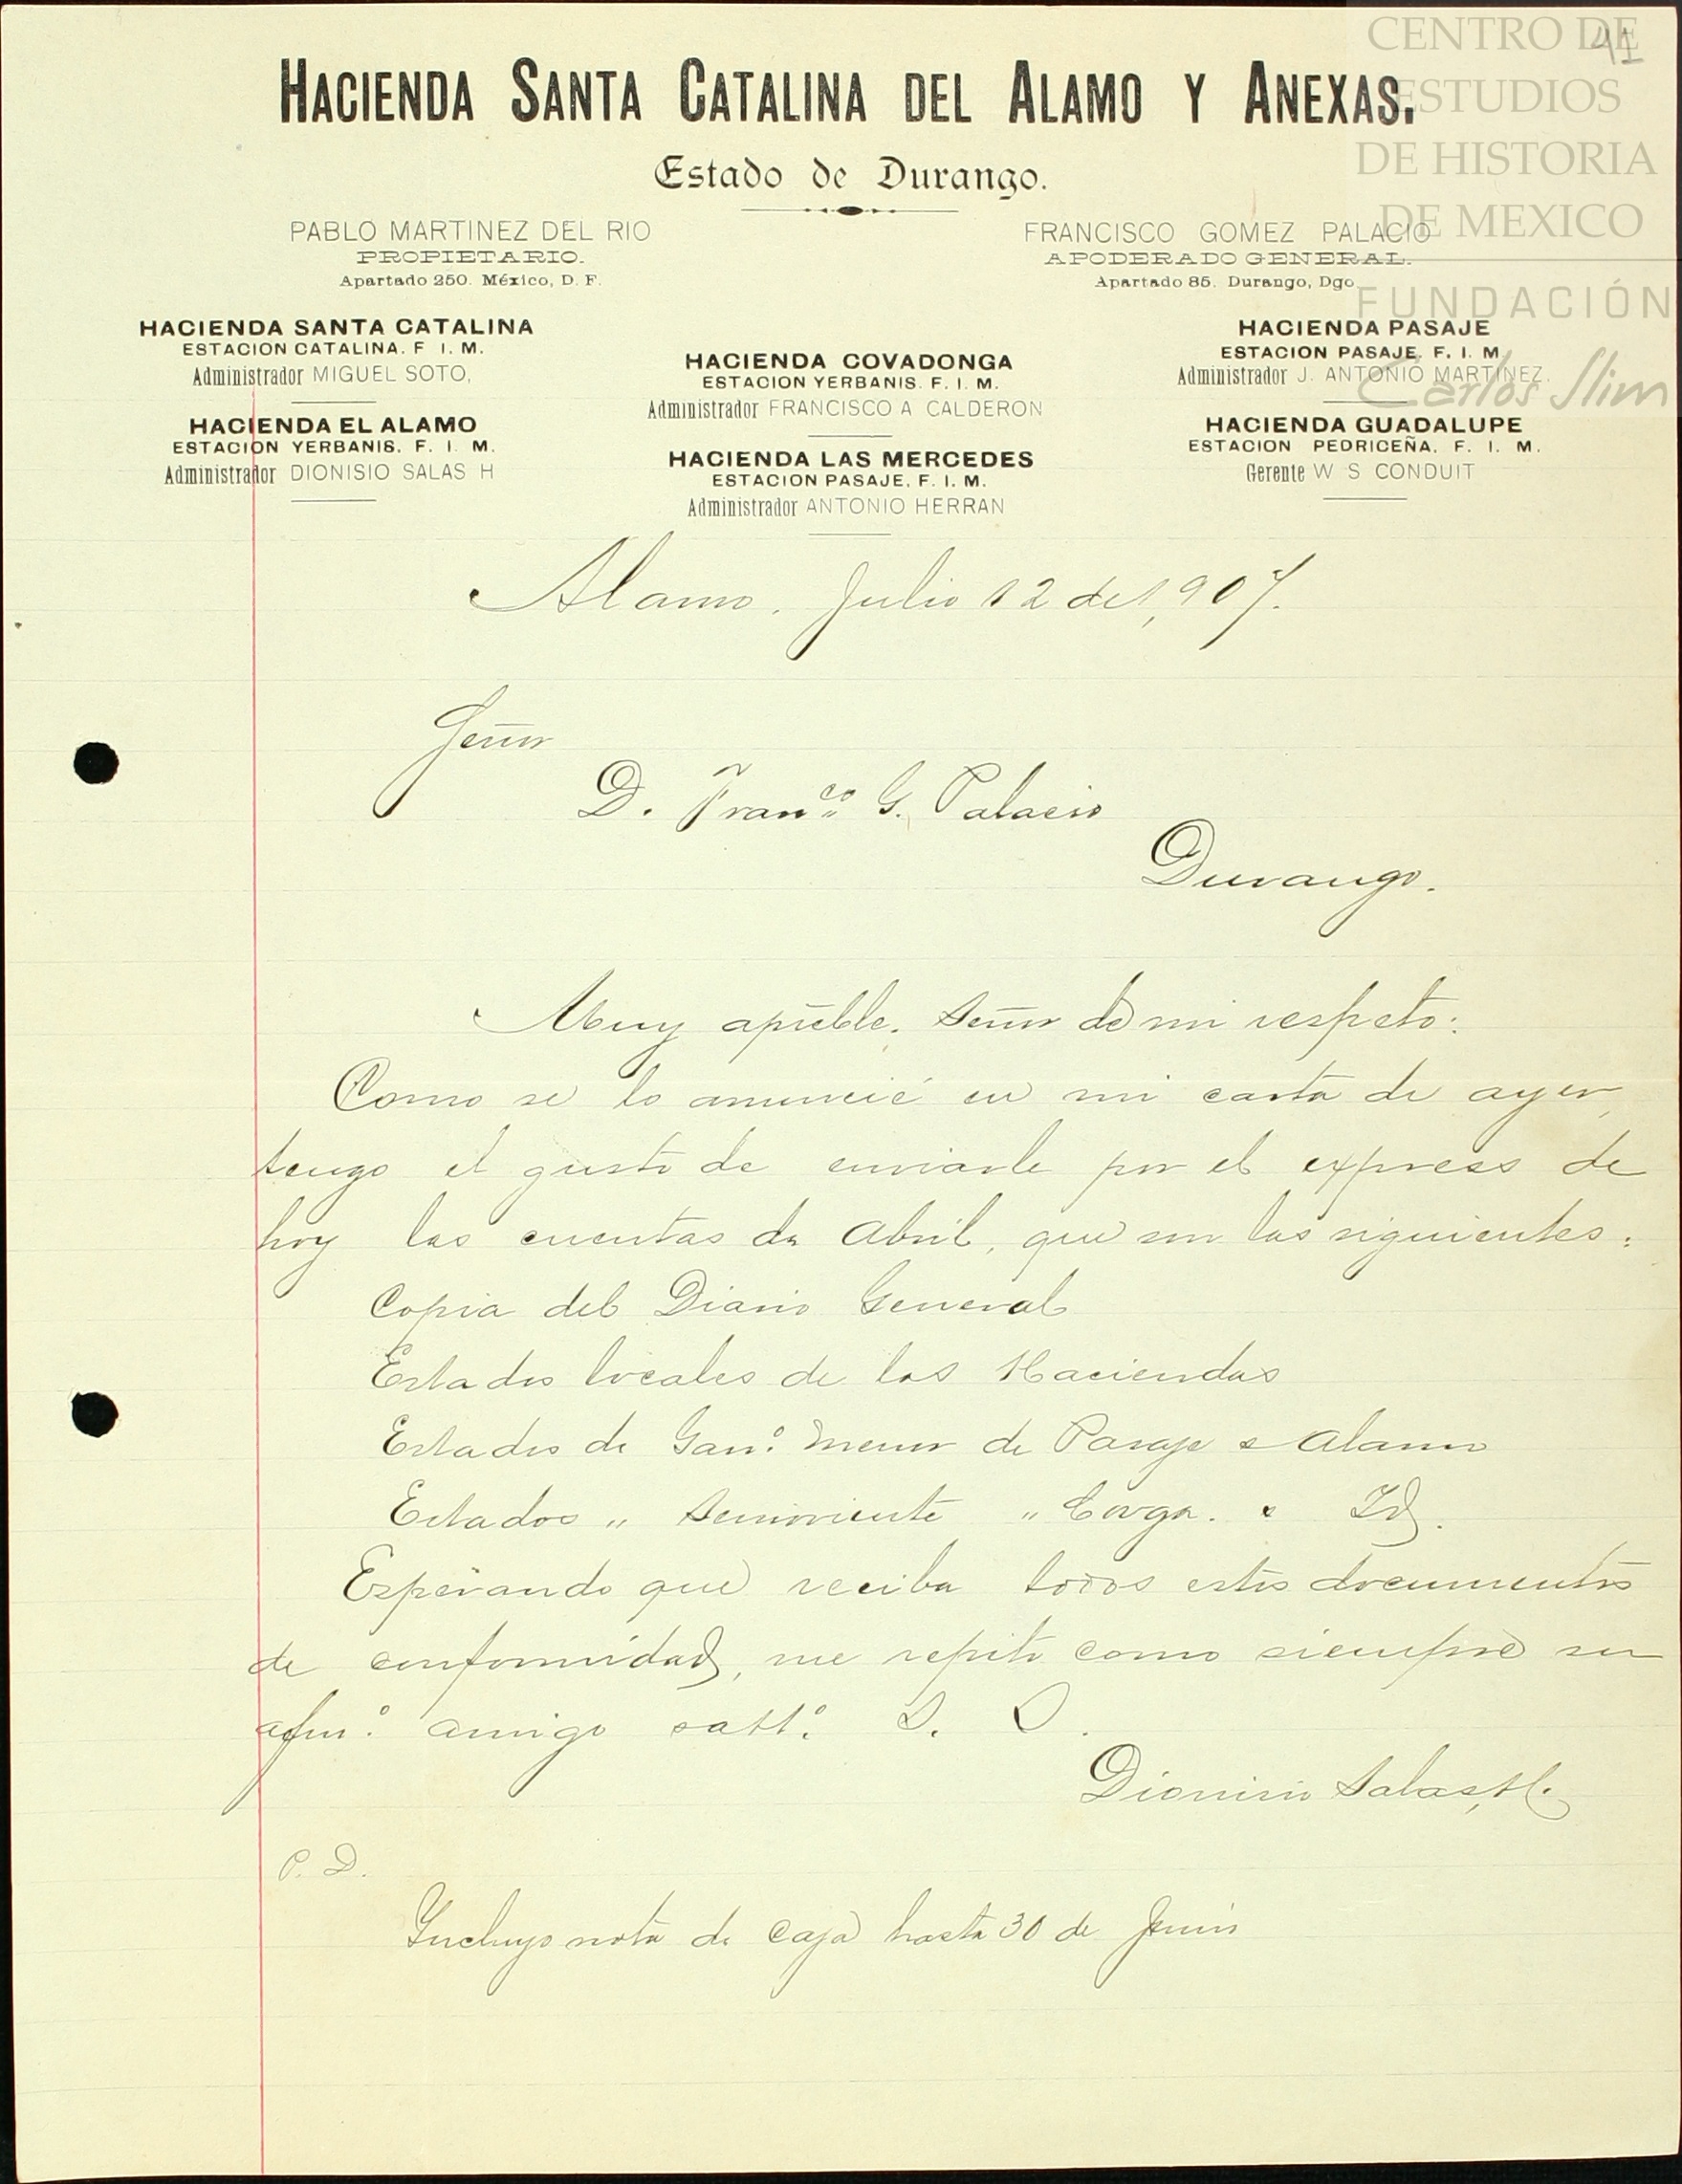 41
CENTRO DE
ESTUDIOS
DE HISTORIA
DE MEXICO
FUNDACIÓN
Carlos Slim
HACIENDA SANTA CATALINA DEL ALAMO Y ANEXAS.
Estado de Durango.
PABLO MARTINEZ DEL RIO
PROPIETARIO.
Apartado 250. México, D. F.
FRANCISCO GOMEZ PALACIO
APODERADO GENERAL.
Apartado 85. Durango, Dgo.
HACIENDA SANTA CATALINA
ESTACION CATALINA. F. I. M.
Administrador MIGUEL SOTO,
HACIENDA EL ALAMO
ESTACION YERBANIS. F. I. M.
Administrador DIONISIO SALAS H
HACIENDA COVADONGA
ESTACION YERBANIS. F. I. M.
Administrador FRANCISCO A CALDERON
HACIENDA LAS MERCEDES
ESTACION PASAJE. F. I. M.
Administrador ANTONIO HERRAN
HACIENDA PASAJE
ESTACION PASAJE. F. I. M
Administrador J. ANTONIO MARTINEZ.
HACIENDA GUADALUPE
ESTACION PEDRICEÑA. F. I. M.
Gerente W S CONDUIT
Alamo. Julio 12 de 1,907.
Señor
D. Franco. G. Palacio
Durango.
Muy apreble. Señor de mi respeto:
Como se lo anuncié en mi carta de ayer,
tengo el gusto de enviarle por el express de
hoy las cuentas de Abril, que son las siguientes:
Copia del Diario General
Estados locales de las Haciendas
Estados de Gano. menor de Pasaje e Alamo
Estados " Semoviente " Covga. e Id.
Esperando que reciba todos estos documentos
de conformidad, me repito como siempre su
afmo. amigo y S. S.
Dionisio Salas H.
P. D.
Incluyo nota de caja hasta 30 de Junio